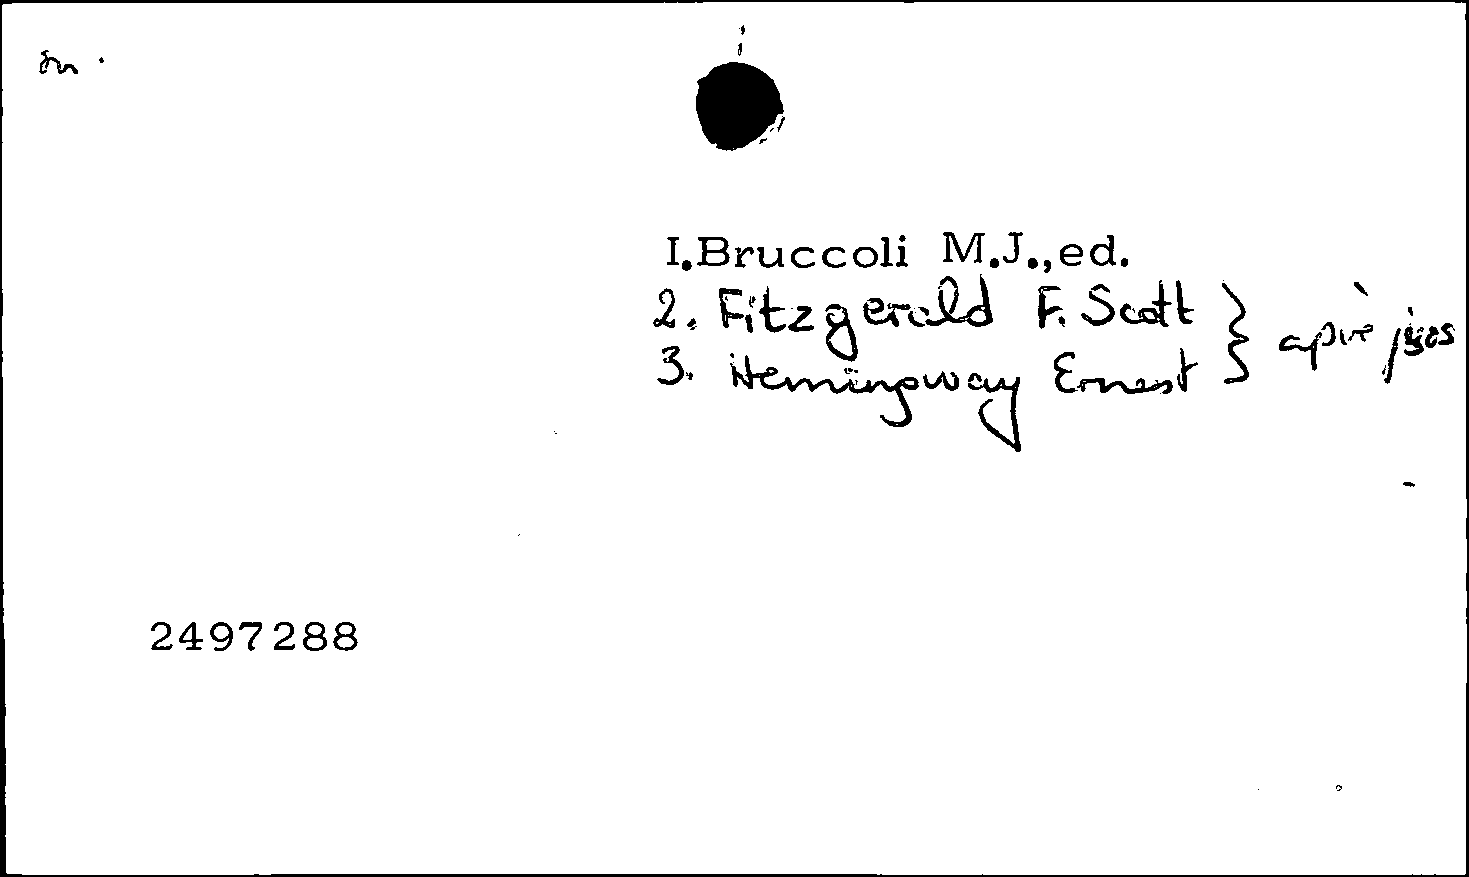 I.Bruccoli M.J.,ed.
2. Fitzgerald F. Scott } apie
3. Hemingway Ernest
2497288